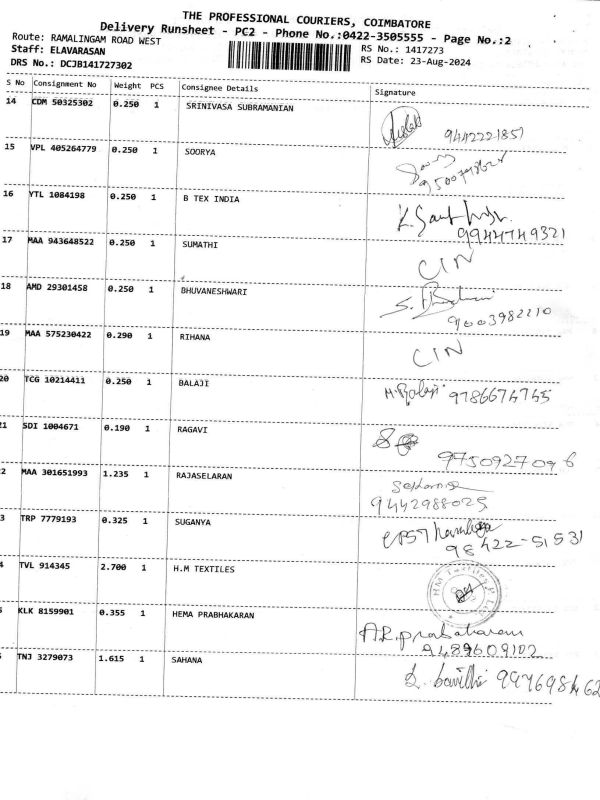 THE PROFESSIONAL COURIERS, COIMBATORE
Delivery Runsheet - PC2 - Phone No.:0422-3505555 - Page No.:2
Route: RAMALINGAM ROAD WEST
Staff: ELAVARASAN
DRS No.: DCJB141727302
RS No.: 1417273
RS Date: 23-Aug-2024
S No Consignment No Weight PCS Consignee Details Signature
14 CDM 50325302 0.250 1 SRINIVASA SUBRAMANIAN
9442221851
15 VPL 405264779 0.250 1 SOORYA
16 YTL 1084198 0.250 1 B TEX INDIA
9944749321
17 MAA 943648522 0.250 1 SUMATHI CIN
18 AMD 29301458 0.250 1 BHUVANESHWARI
9003982210
19 MAA 575230422 0.290 1 RIHANA CIN
20 TCG 10214411 0.250 1 BALAJI M. Balaji 9786674745
21 SDI 1004671 0.190 1 RAGAVI
9750927096
2 MAA 301651993 1.235 1 RAJASELARAN
9442988025
3 TRP 7779193 0.325 1 SUGANYA
98422-51531
4 TVL 914345 2.700 1 H.M TEXTILES
KLK 8159901 0.355 1 HEMA PRABHAKARAN
A.R. prabakaran
9489609102
TNJ 3279073 1.615 1 SAHANA